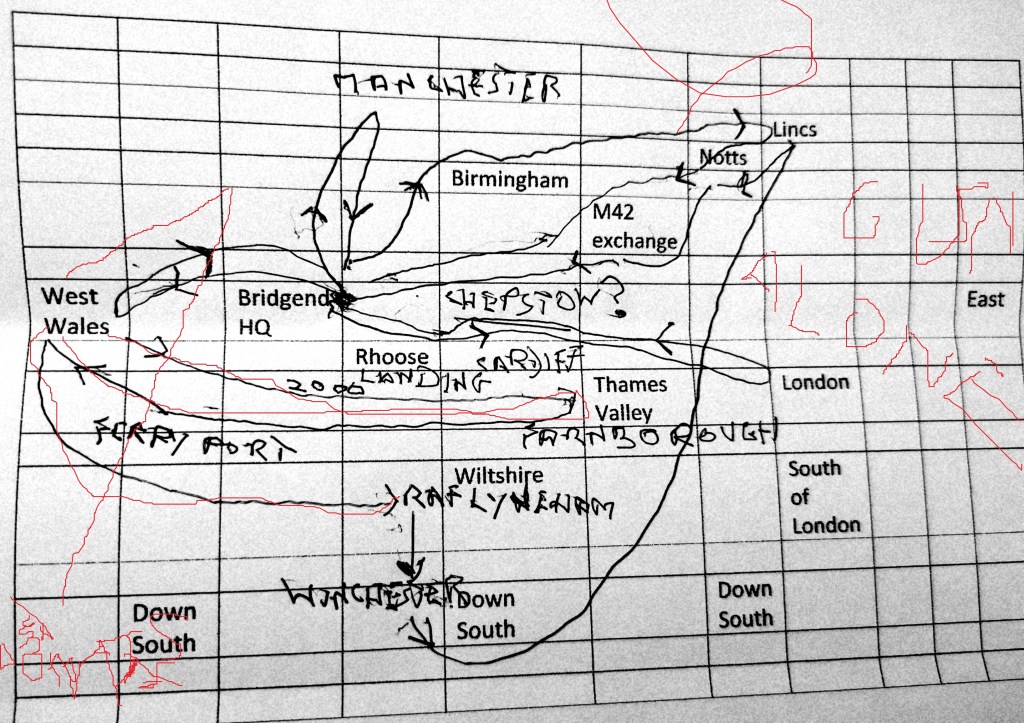 MANCHESTER
Lincs
Notts
Birmingham
M42
exchange
West
Wales
Bridgend
HQ
CHEPSTOW?
East
Rhoose
LANDING
CARDIFF
2000
Thames
Valley
London
FERRY PORT
FARNBOROUGH
Wiltshire
RAF LYNEHAM
South
of
London
WINCHESTER
Down
South
Down
South
Down
South